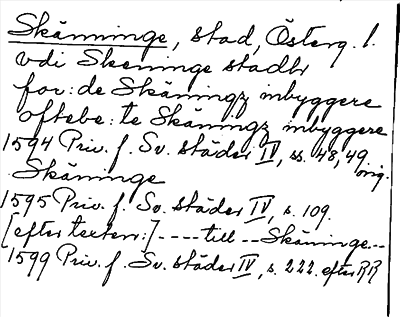 Skänninge, stad, Österg. l.
vdi Skeninge stadh
for: de Skäningz inbyggere
oftebe: te Skäningz inbyggere
1594 Priv. f. Sv. städer IV, ss. 48, 49 orig.
Skäninge
1595 Priv. f. Sv. städer IV, s. 109.
[efter texten:] ---- till -- Skäninge --
1599 Priv. f. Sv. städer IV, s. 222. efter RR